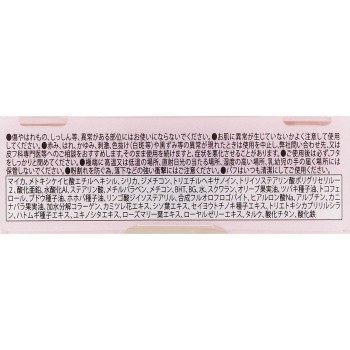 ●傷やはれもの、しっしん等、異常がある部位にはお使いにならないでください。●お肌に異常が生じていないかよく注意して使用
してください。●赤み、はれ、かゆみ、刺激、色抜け(白斑等)や黒ずみ等の異常が現れたときは使用を中止し、弊社問い合わせ先、又は
皮フ科専門医等へのご相談をおすすめします。そのまま使用を続けますと、症状が悪化することがあります。●ご使用後は必ずフタ
をしっかりと閉めてください。●極端に高温又は低温の場所、直射日光の当たる場所、湿度の高い場所、乳幼児の手の届く場所には
保管しないでください。●粉割れを防ぐ為、落下などの強い衝撃にご注意ください。●パフはいつも清潔にしてご使用ください。
マイカ、メトキシケイヒ酸エチルヘキシル、シリカ、ジメチコン、トリエチルヘキサノイン、トリイソステアリン酸ポリグリセリル-
2、酸化亜鉛、水酸化Al、ステアリン酸、メチルパラベン、メチコン、BHT、BG、水、スクワラン、オリーブ果実油、ツバキ種子油、トコフェ
ロール、ブドウ種子油、ホホバ種子油、リンゴ酸ジイソステアリル、合成フルオロフロゴパイト、ヒアルロン酸Na、アルブチン、カ
ニナバラ果実油、加水分解コラーゲン、カミツレ花エキス、シソ葉エキス、セイヨウトチノキ種子エキス、トリエトキシカプリリルシラ
ン、ハトムギ種子エキス、ユキノシタエキス、ローズマリー葉エキス、ローヤルゼリーエキス、タルク、酸化チタン、酸化鉄